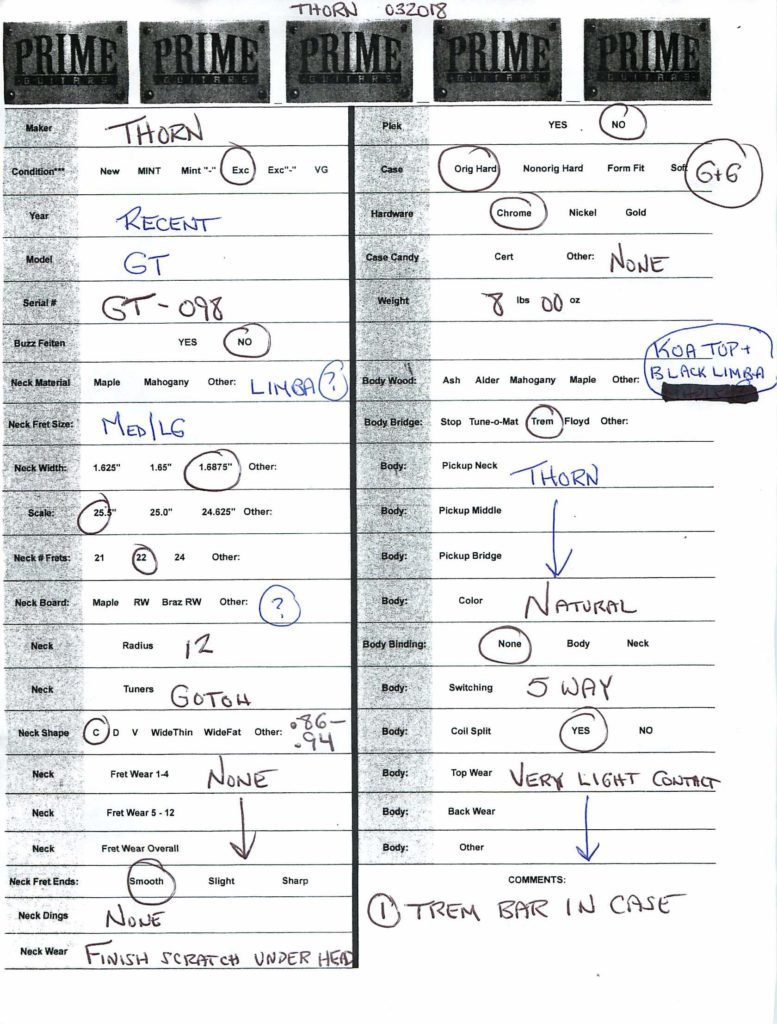 THORN 032018
PRIME GUITARS PRIME GUITARS PRIME GUITARS PRIME GUITARS PRIME GUITARS
Maker THORN
Condition*** New MINT Mint "-" Exc Exc"-" VG
Year RECENT
Model GT
Serial # GT-098
Buzz Feiten YES NO
Neck Material Maple Mahogany Other: LIMBA ?
Neck Fret Size: MED/LG
Neck Width: 1.625" 1.65" 1.6875" Other:
Scale: 25.5" 25.0" 24.625" Other:
Neck # Frets: 21 22 24 Other:
Neck Board: Maple RW Braz RW Other: ?
Neck Radius 12
Neck Tuners GOTOH
Neck Shape C D V WideThin WideFat Other: .86-
.94
Neck Fret Wear 1-4 NONE
Neck Fret Wear 5 - 12
Neck Fret Wear Overall
Neck Fret Ends: Smooth Slight Sharp
Neck Dings NONE
Neck Wear FINISH SCRATCH UNDER HEAD
Plek YES NO
Case Orig Hard Nonorig Hard Form Fit Soft G+G
Hardware Chrome Nickel Gold
Case Candy Cert Other: NONE
Weight 8 lbs 00 oz
KOA TOP +
Body Wood: Ash Alder Mahogany Maple Other: BLACK LIMBA
Body Bridge: Stop Tune-o-Mat Trem Floyd Other:
Body: Pickup Neck THORN
Body: Pickup Middle
Body: Pickup Bridge
Body: Color NATURAL
Body Binding: None Body Neck
Body: Switching 5 WAY
Body: Coil Split YES NO
Body: Top Wear VERY LIGHT CONTACT
Body: Back Wear
Body: Other
COMMENTS:
1 TREM BAR IN CASE